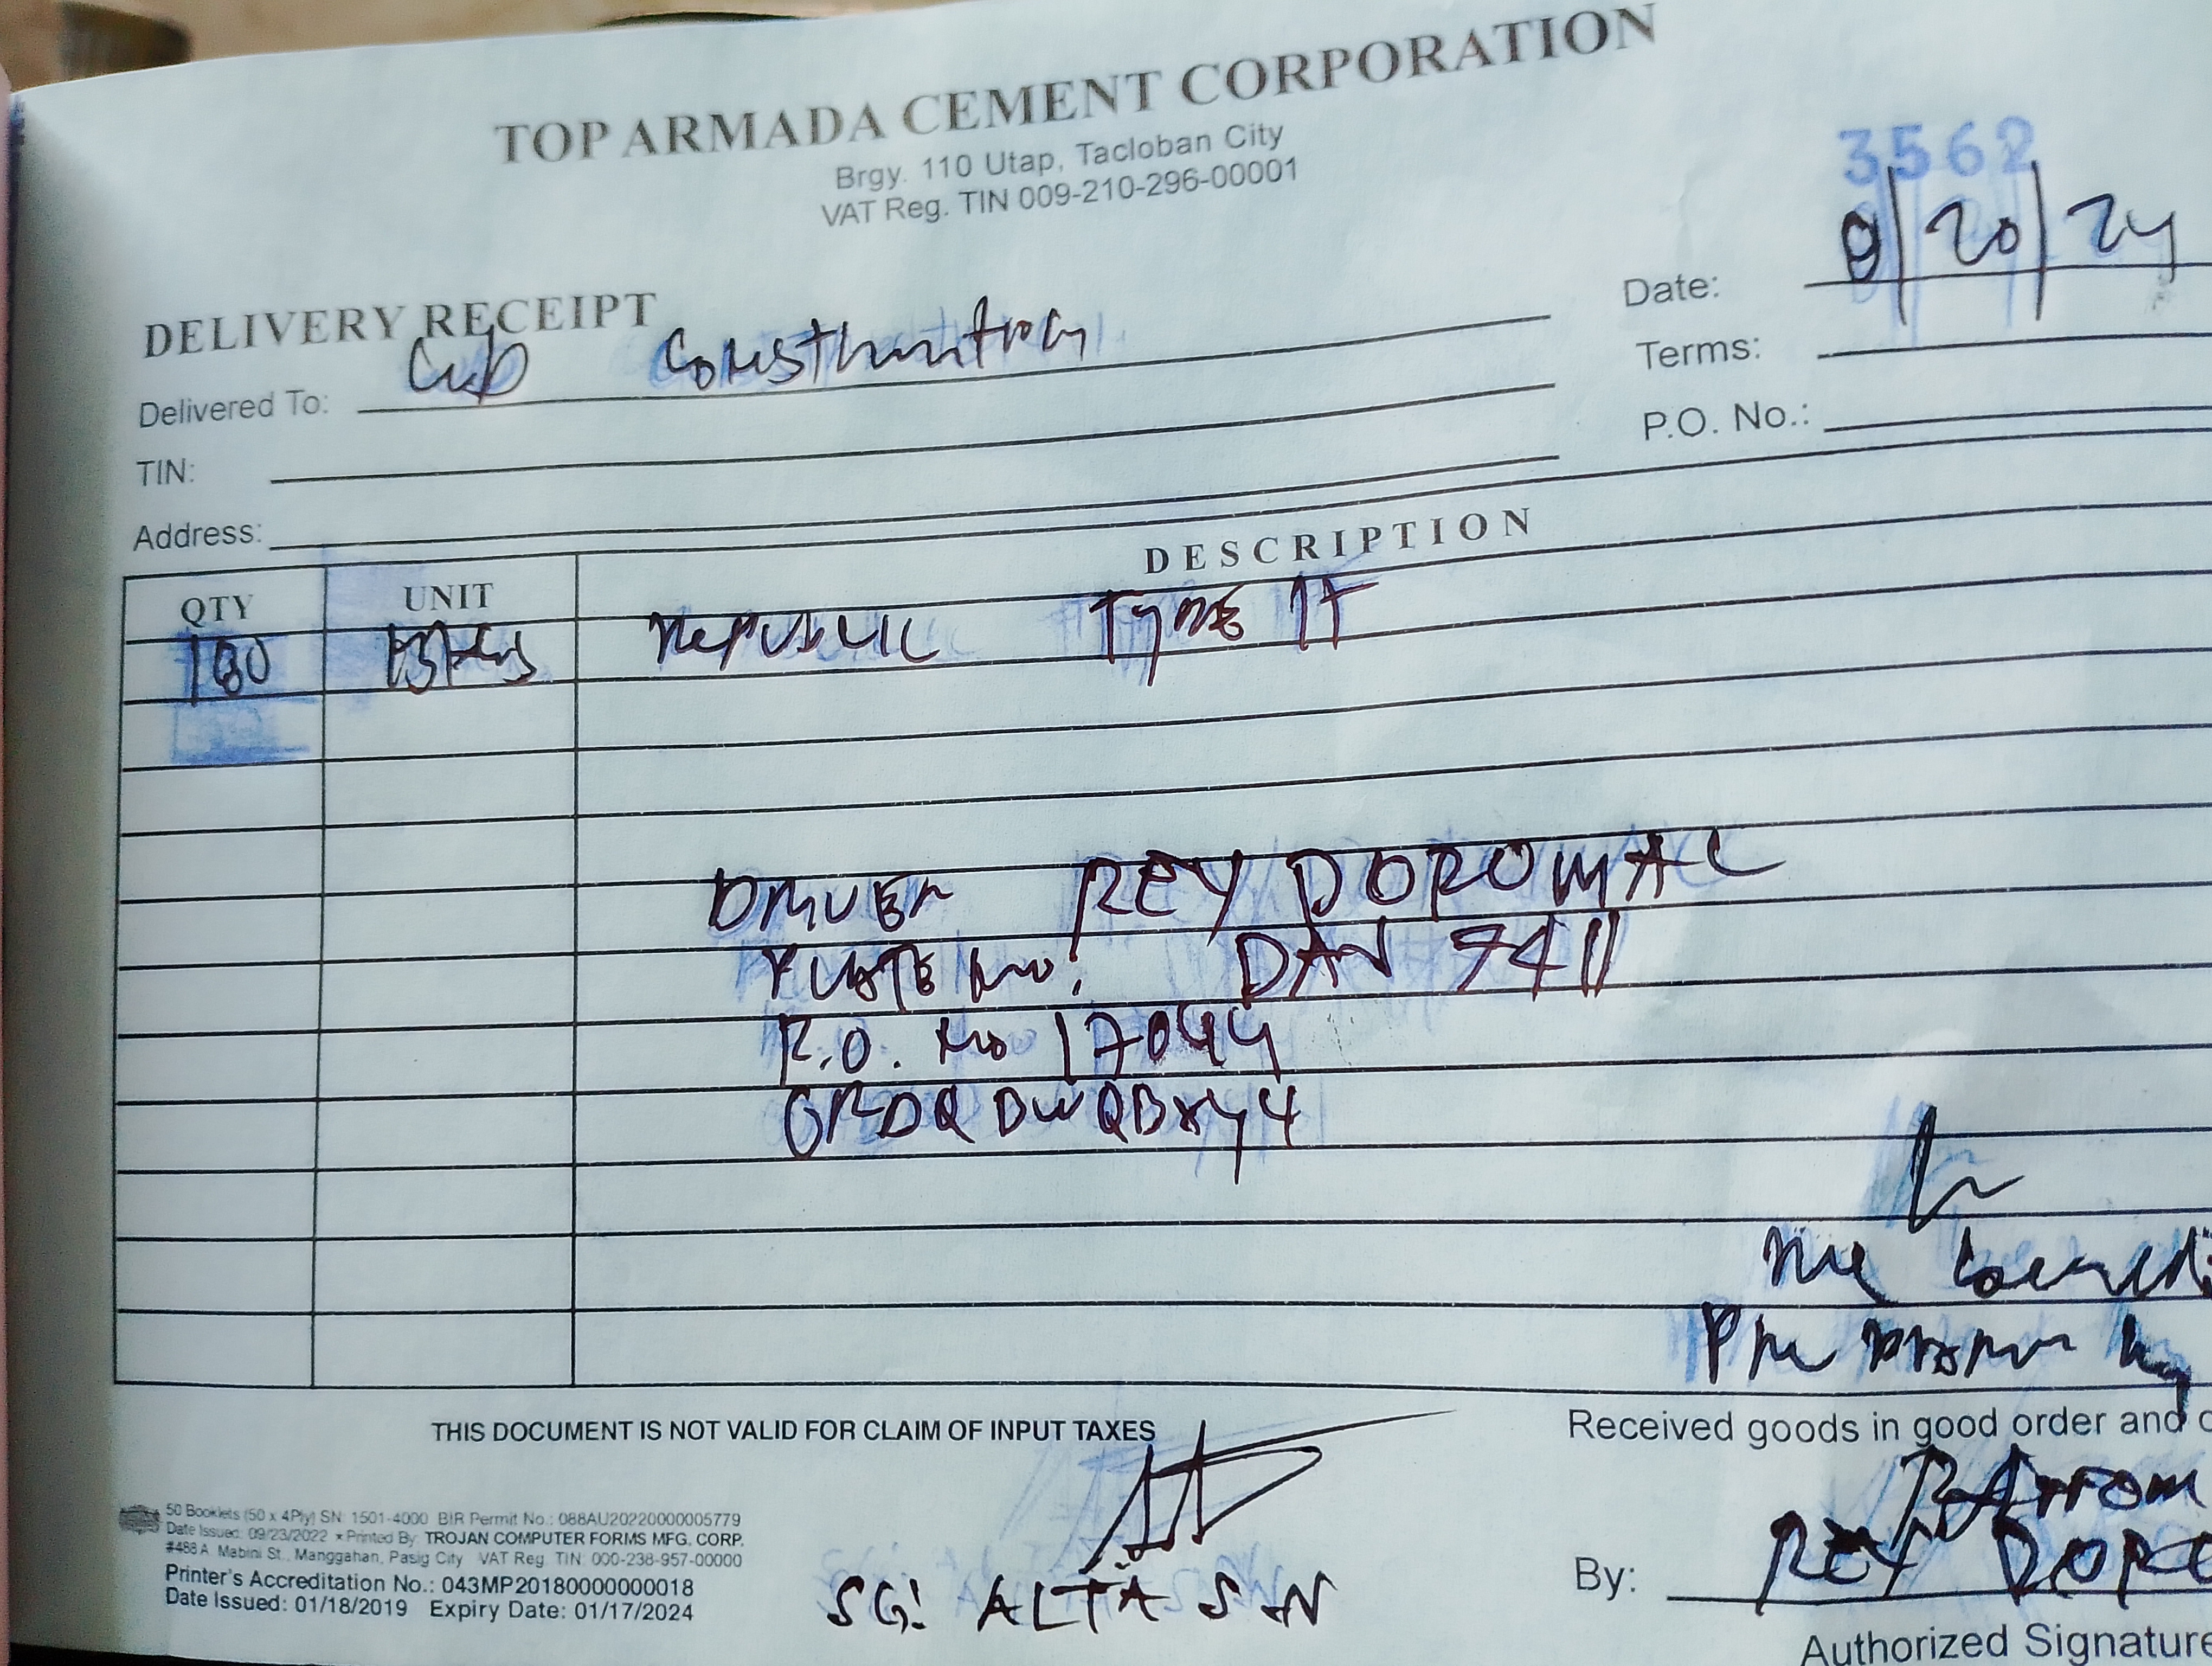 TOP ARMADA CEMENT CORPORATION
Brgy. 110 Utap, Tacloban City
VAT Reg. TIN 009-210-296-00001
3562
DELIVERY RECEIPT
Date: 9/20/24
Delivered To: Construction
Terms:
TIN:
P.O. No.:
Address:
QTY UNIT DESCRIPTION
180 BAGS REPUBLIC TYPE 1T
DRIVER REY DOROMAL
PLATE No: DAV 9411
P.O. No 17044
GPDQDWQBXY4
THIS DOCUMENT IS NOT VALID FOR CLAIM OF INPUT TAXES
Received goods in good order and
50 Booklets (50 x 4Ply) SN: 1501-4000 BIR Permit No.: 088AU20220000005779
Date Issued: 09/23/2022 * Printed By: TROJAN COMPUTER FORMS MFG. CORP.
#488 A. Mabini St., Manggahan, Pasig City VAT Reg. TIN: 000-238-957-00000
Printer's Accreditation No.: 043MP20180000000018
Date Issued: 01/18/2019 Expiry Date: 01/17/2024
SG: ALTA SN
By: REY DORO
Authorized Signature